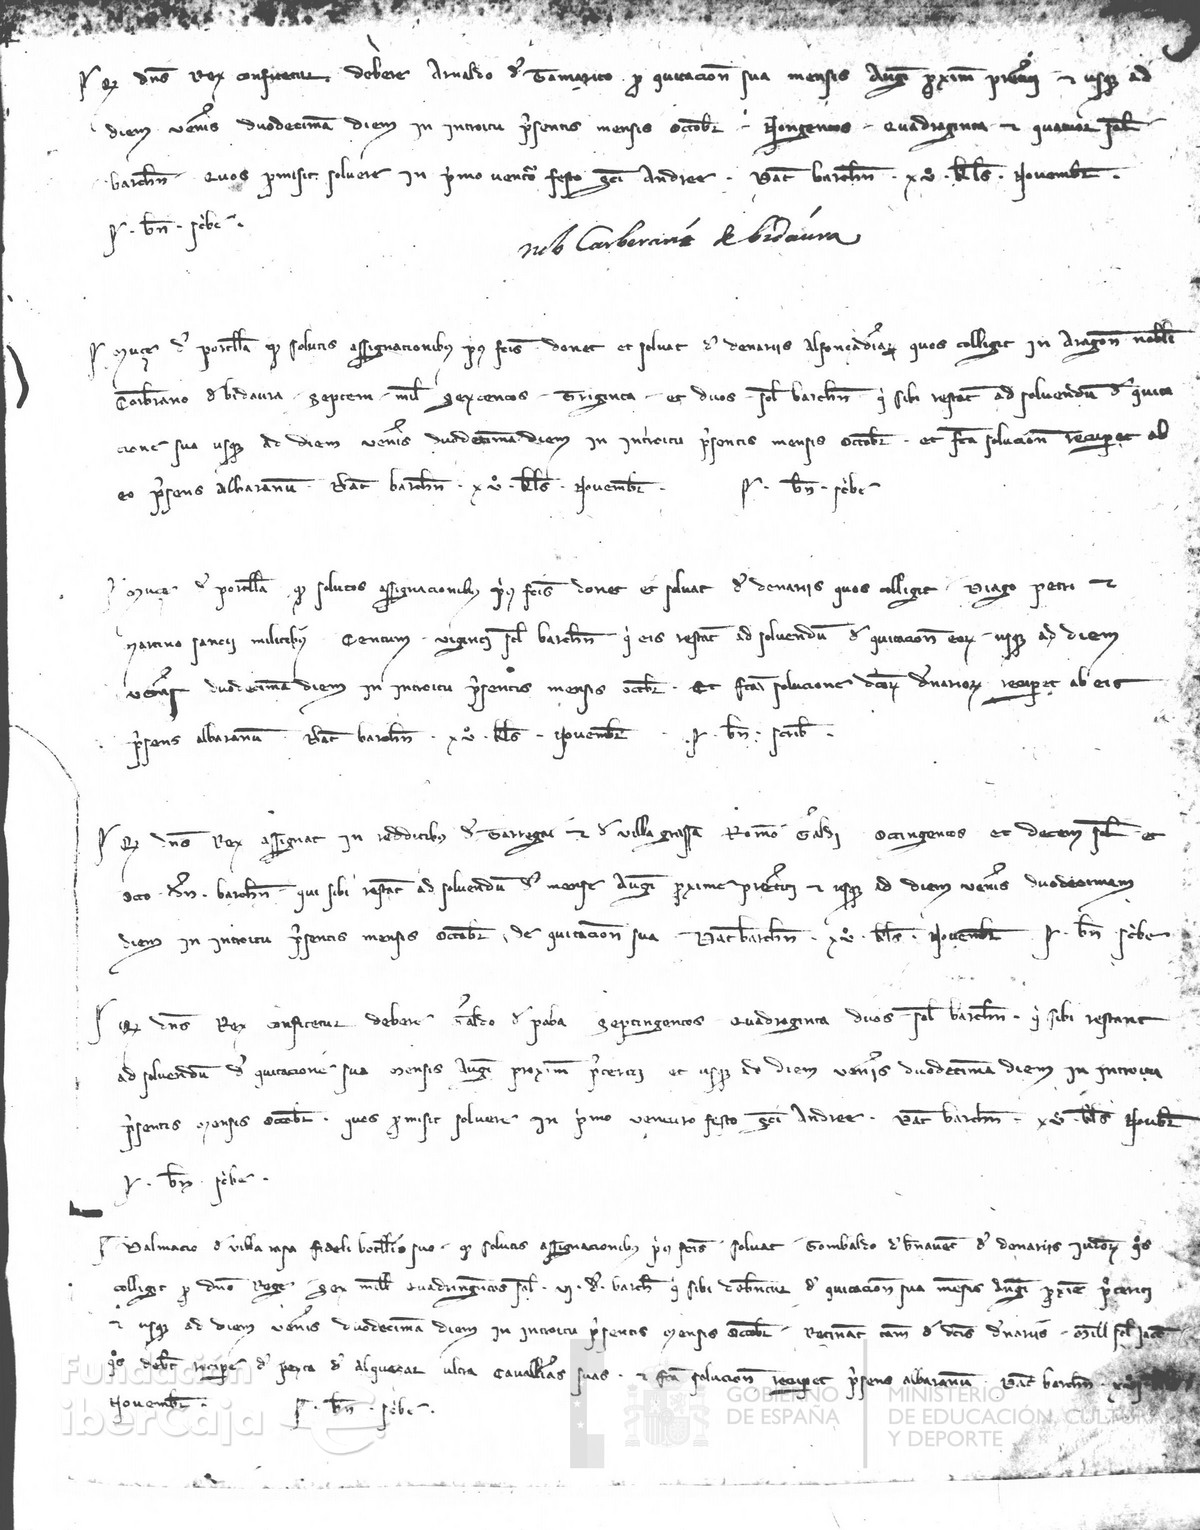 Qr dns Rex confitetur debere Arnaldo de Tamarito pro quitacion sua mensis Augi proxim preteriti et usq ad
diem veneris duodecima diem in introitu presentis mensis Octobr Nongentos Quadraginta et quatuor sol
barchn quos promisit solvere in primo venturo festo sci Andree . Dat barchn . xv . kls . Novembr .
P . bn . scribe .
nob Carberani de bidaura
Muçe de portella qd solutis assignacionibus prius fcis donet et solvat de denariis Alfonçadiar quos colligit in Aragon nobili
Corbrano de bidaura septem mill sexcentos Triginta et duos sol barchn qi sibi restat ad solvendu de quita
cione sua usq ad diem veneris duodecima diem in introitu presentis mensis Octobr . et fca solucion recuperet ab
eo presens albaranu . Dat barchn . xv . kls . Novembr . P . bn . scribe
Muçe de portella qd solutos assignacionibus prius fcis donet et solvat de denariis quos colligit Diago petri et
Martino sancii militibus Centum viginti sol barchn qi eis restat ad solvendu de quitacion eor usq ad diem
veneris duodecima diem in introitu presentis mensis octobr . Et fca solucione dcor denarior recuperet ab eis
presens albaranu Dat barchn . xv . kls . Novembr . P . bn . scrib .
Qr dns Rex assignat in redditibus de Tarrega et de villa grassa Romeo Galdi Octingentos et decem sol et
octo dn . barchn qui sibi restat ad solvendu de mense Augi proxime preteriti et usq ad diem veneris duodecimam
diem in introitu presentis mensis Octobr , de quitacion sua Dat barchn . xv . kls . Novembr P . bn scribe
Qr dns Rex confitetur debere Raldo de paba Septingentos Quadraginta duos sol barchn . qi sibi restant
ad solvendu de quitacione sua mensis Augi proxim preteriti et usq ad diem veneris duodecima diem in introitu
presentis mensis Octobr . quos promisit solvere in primo venturo festo sci Andree . Dat barchn . xv . kls Novbr
P . bn scribe .
Dalmacio de villa rasa fideli botellio suo qd solutis assignacionibus prius fcis solvat Gombaldo de benavent de denariis iudeor qos
colligit pro dno Rege sex mill quadringentos sol . vi . dr . barchn qi sibi debentur de quitacion sua mensis Augi proxie preteriti
et usq ad diem veneris duodecima diem in introitu presentis mensis Octobr . Retineat tam de dcis denariis Mill sol iacc
qos debet recipe de peyta de Alqueçar ultra cavallias suas . et fca solucion recuperet presens albaranu . Dat barchn .
Novembr . P . bn . scribe .
Fundación
iberCaja
GOBIERNO
DE ESPAÑA
MINISTERIO
DE EDUCACIÓN, CULTURA
Y DEPORTE